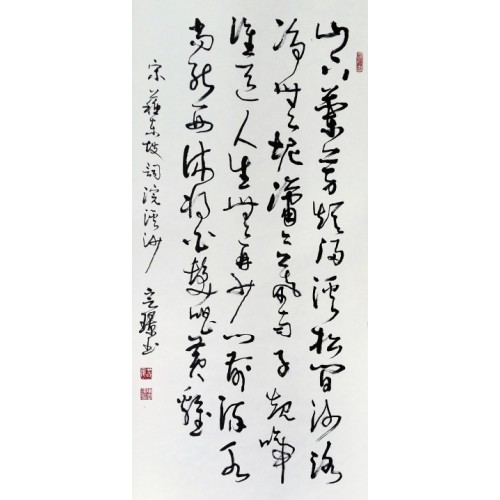 山下蘭芽短浸溪松間沙路
淨無泥瀟瀟暮雨子規啼
誰道人生無再少門前流水
尚能西休將白髮唱黃雞
宋蘇東坡詞浣溪沙